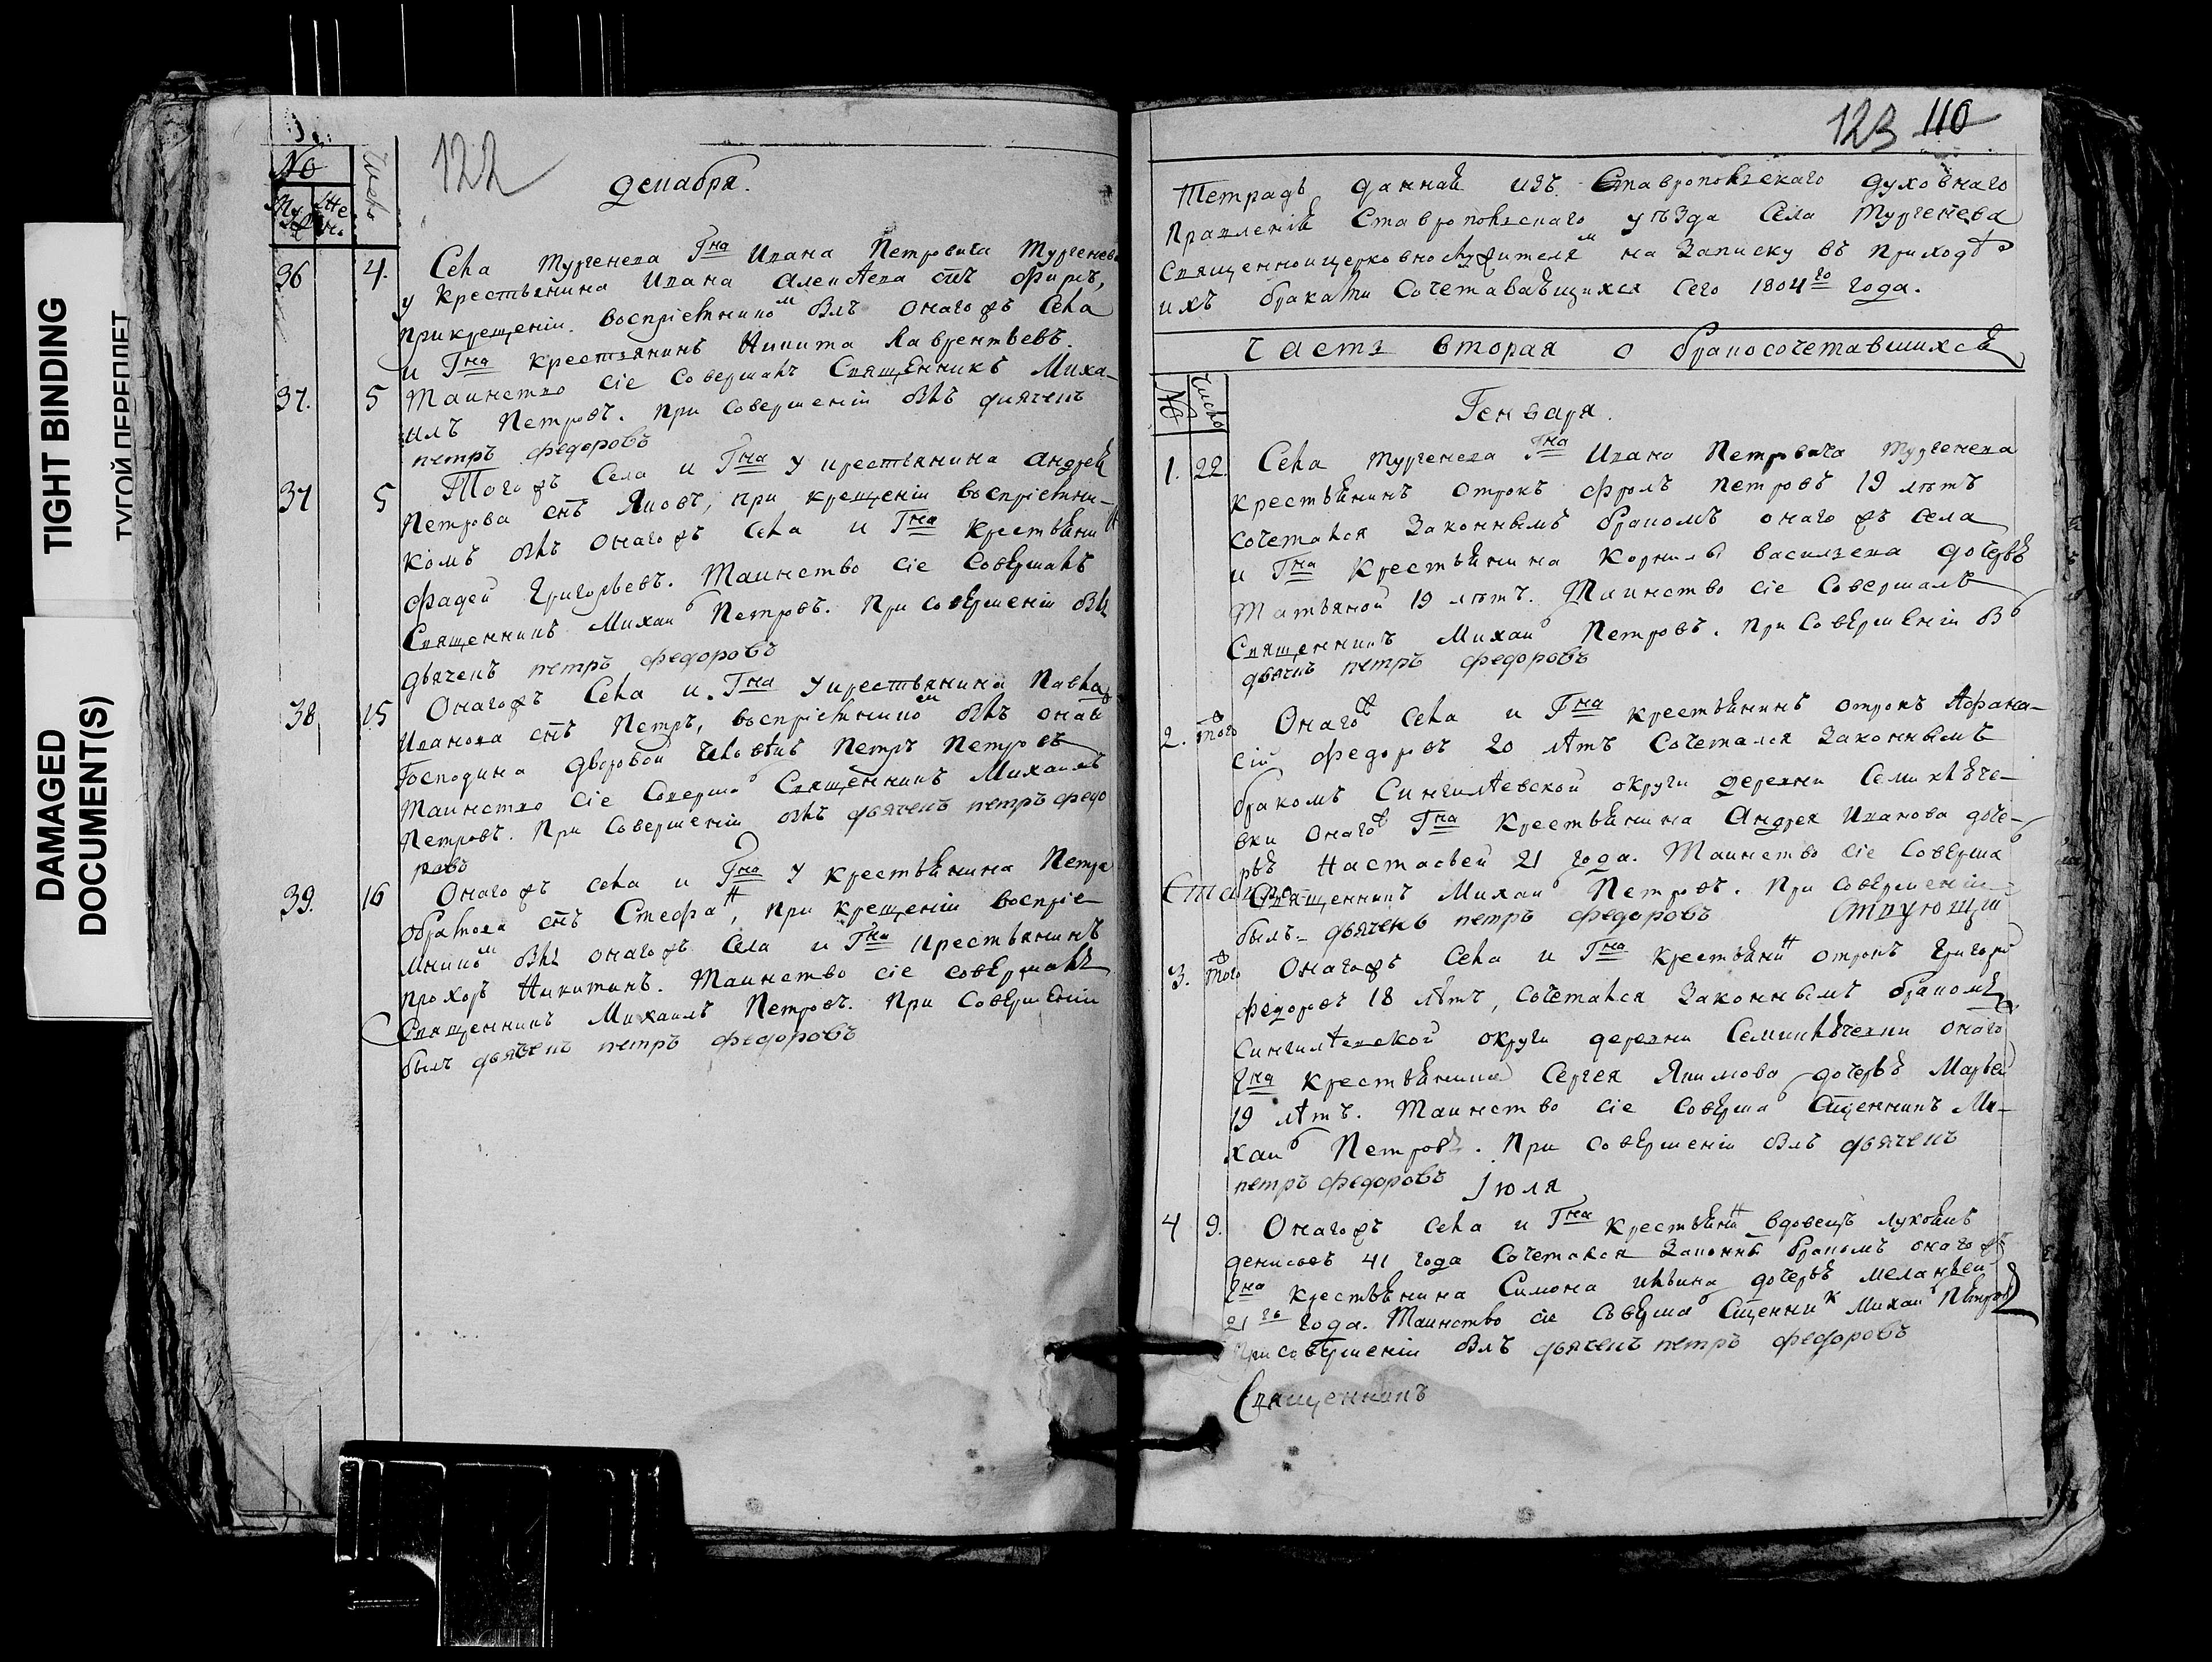 TIGHT BINDING
ТУГОЙ ПЕРЕПЛЕТ
DAMAGED
DOCUMENT(S)
122
No
Число
декабря.
36 4. Села Тургенева Гна Ивана Петровича Тургенева
у крестьянина Ивана Алексѣева снъ Фирсъ,
при крещеніи воспріемником былъ онагожъ села
и Гна крестьянинъ Никита Лаврентьевъ.
37. 5 Таинство сіе совершалъ Священникъ Миха-
илъ Петровъ. При совершеніи былъ дьячекъ
петръ федоровъ
37 5 Тогожъ села и Гна у крестьянина Андрея
Петрова снъ Яковъ, при крещеніи воспріемни-
комъ былъ онагожъ села и Гна крестьянин
Фадей Григорьевъ. Таинство сіе совершалъ
Священникъ Михаил Петровъ. При совершеніи былъ
дьячекъ петръ федоровъ
38 15 Онагожъ села и Гна у крестьянина Павла
Иванова снъ Петръ, воспріемником былъ онагожъ
Господина дворовой человѣкъ Петръ Петровъ
Таинство сіе соверша Священникъ Михаилъ
Петровъ. При совершеніи былъ дьячекъ петръ федо
ровъ
39. 16 Онагожъ села и Гна у крестьянина Петра
снъ Стефан, при крещеніи воспріе-
мником былъ онагожъ села и Гна крестьянинъ
Прохоръ Никитинъ. Таинство сіе совершалъ
Священникъ Михаилъ Петровъ. При совершеніи
былъ дьячекъ петръ федоровъ
123 110
Тетрадь данная изъ Ставропольскаго духовнаго
Правленія Ставропольскаго уѣзда Села Тургенева
Священноицерковнослужителям на записку въ приходѣ
ихъ браками сочетавающихся сего 1804го года.
Часть вторая о бракосочетавшихся
No Число
Генваря.
1. 22 Села Тургенева Гна Ивана Петровича Тургенева
крестьянинъ отрокъ Фролъ Петровъ 19 лѣтъ
сочетался законнымъ бракомъ онагожъ села
и Гна крестьянина Корнила Васильева дочерью
Татьяной 19 лѣтъ. Таинство сіе совершалъ
Священникъ Михаил Петровъ. При совершеніи был
дьячекъ петръ федоровъ
2. того ж Онагож села и Гна крестьянинъ отрокъ Афана-
сій Федоровъ 20 лѣтъ сочетался законнымъ
бракомъ Сингилѣевской округи деревни Семиключе-
вки онагож Гна крестьянина Андрея Иванова доче-
рью Настасьей 21 года. Таинство сіе совершал
Священникъ Михаил Петровъ. При совершеніи
былъ дьячекъ петръ федоровъ
3. того ж Онагожъ села и Гна крестьянин отрокъ Григорей
Федоровъ 18 лѣтъ, сочетался законнымъ бракомъ
Сингилѣевской округи деревни Семиключевки онаго
Гна крестьянина Сергея Якимова дочерью Марьей
19 лѣтъ. Таинство сіе совершал Сщенникъ Ми-
хаил Петровъ. При совершеніи былъ дьячекъ
петръ федоровъ
Іюля
4 9. Онагожъ села и Гна крестьянин вдовецъ Лукоянъ
денисовъ 41 года сочетался законнымъ бракомъ онагожъ
Гна крестьянина Симона Ильина дочерью Меланьей
21го года. Таинство сіе совершал Сщенник Михаил Петровъ
При совершеніи былъ дьячекъ петръ федоровъ
Священникъ